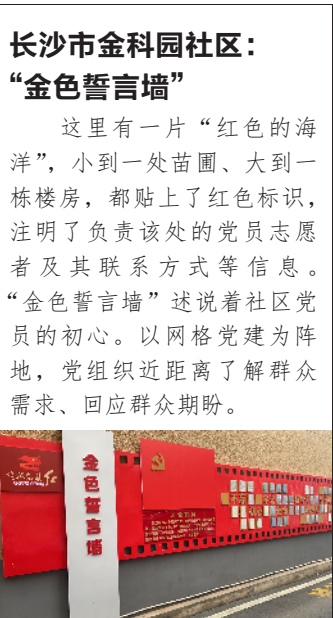 长沙市金科园社区：
“金色誓言墙”
这里有一片“红色的海
洋”，小到一处苗圃、大到一
栋楼房，都贴上了红色标识，
注明了负责该处的党员志愿
者及其联系方式等信息。
“金色誓言墙”述说着社区党
员的初心。以网格党建为阵
地，党组织近距离了解群众
需求、回应群众期盼。
金色誓言墙
入党誓词
不忘